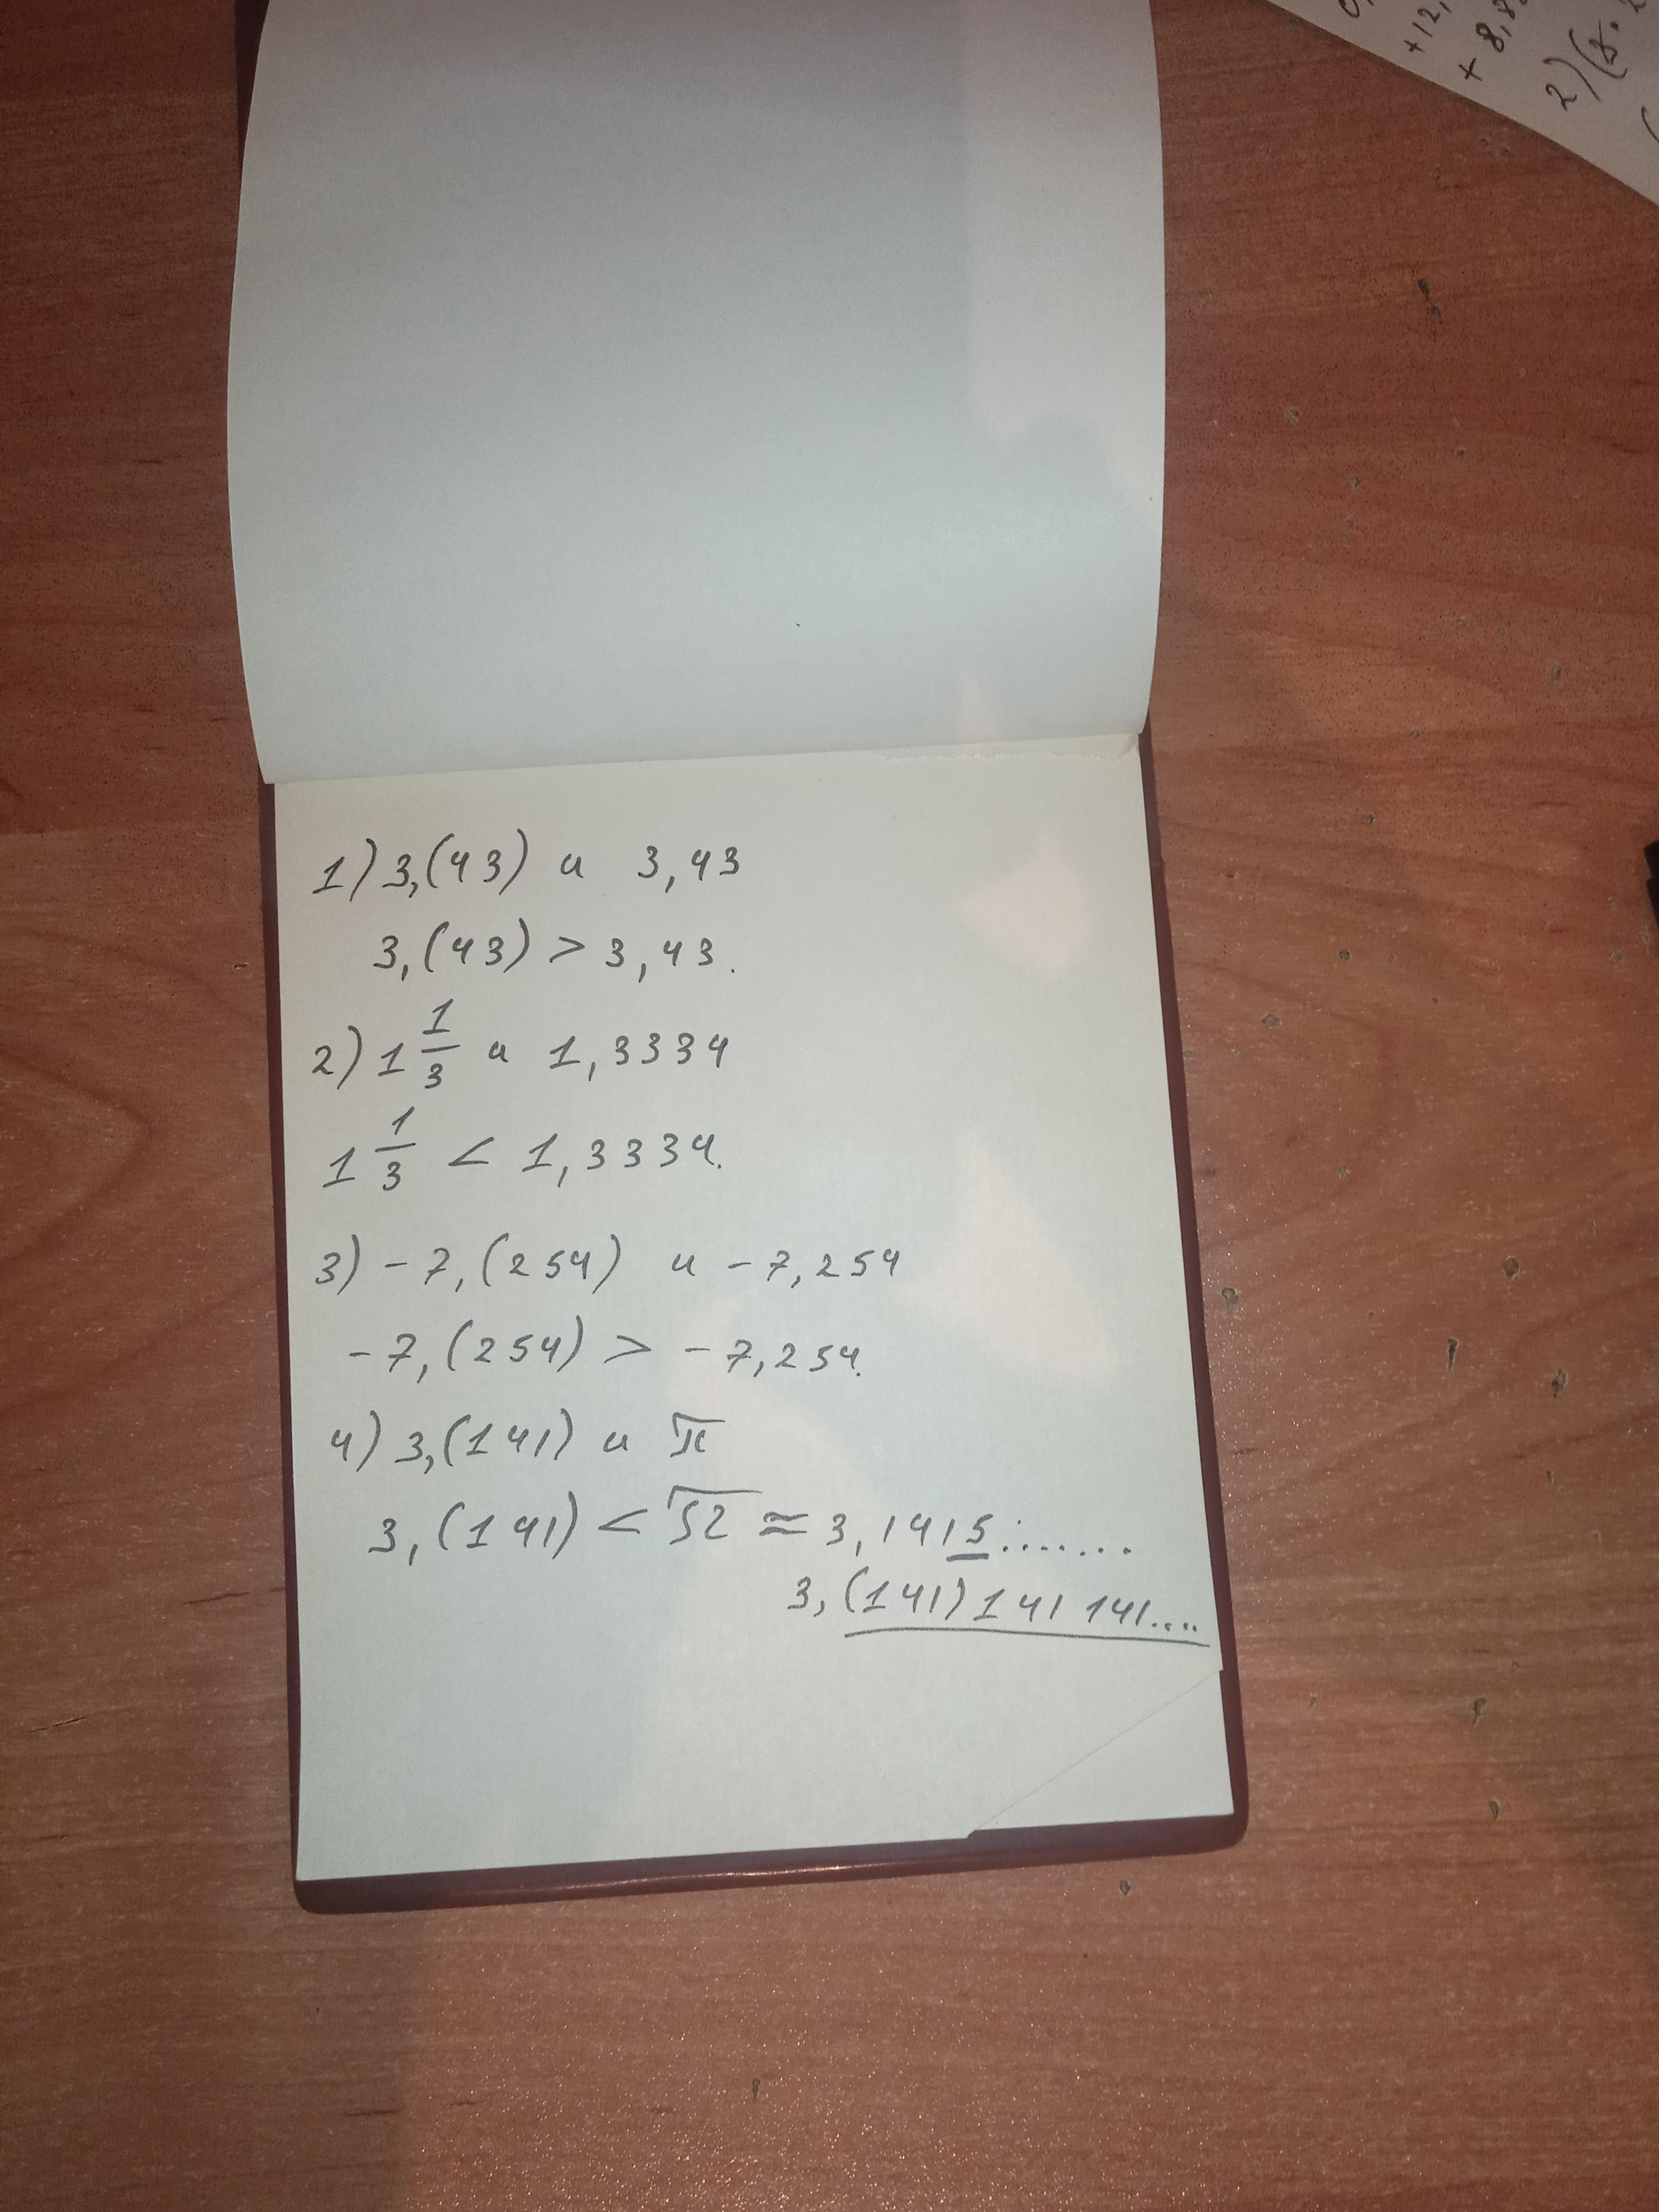 1) 3,(43) и 3,43
3,(43) > 3,43.
2) 1 1/3 и 1,3334
1 1/3 < 1,3334.
3) -7,(254) и -7,254
-7,(254) > -7,254.
4) 3,(141) и π
3,(141) < π ≈ 3,1415.......
3,(141)141 141....
+12,
+ 8,8
2)(